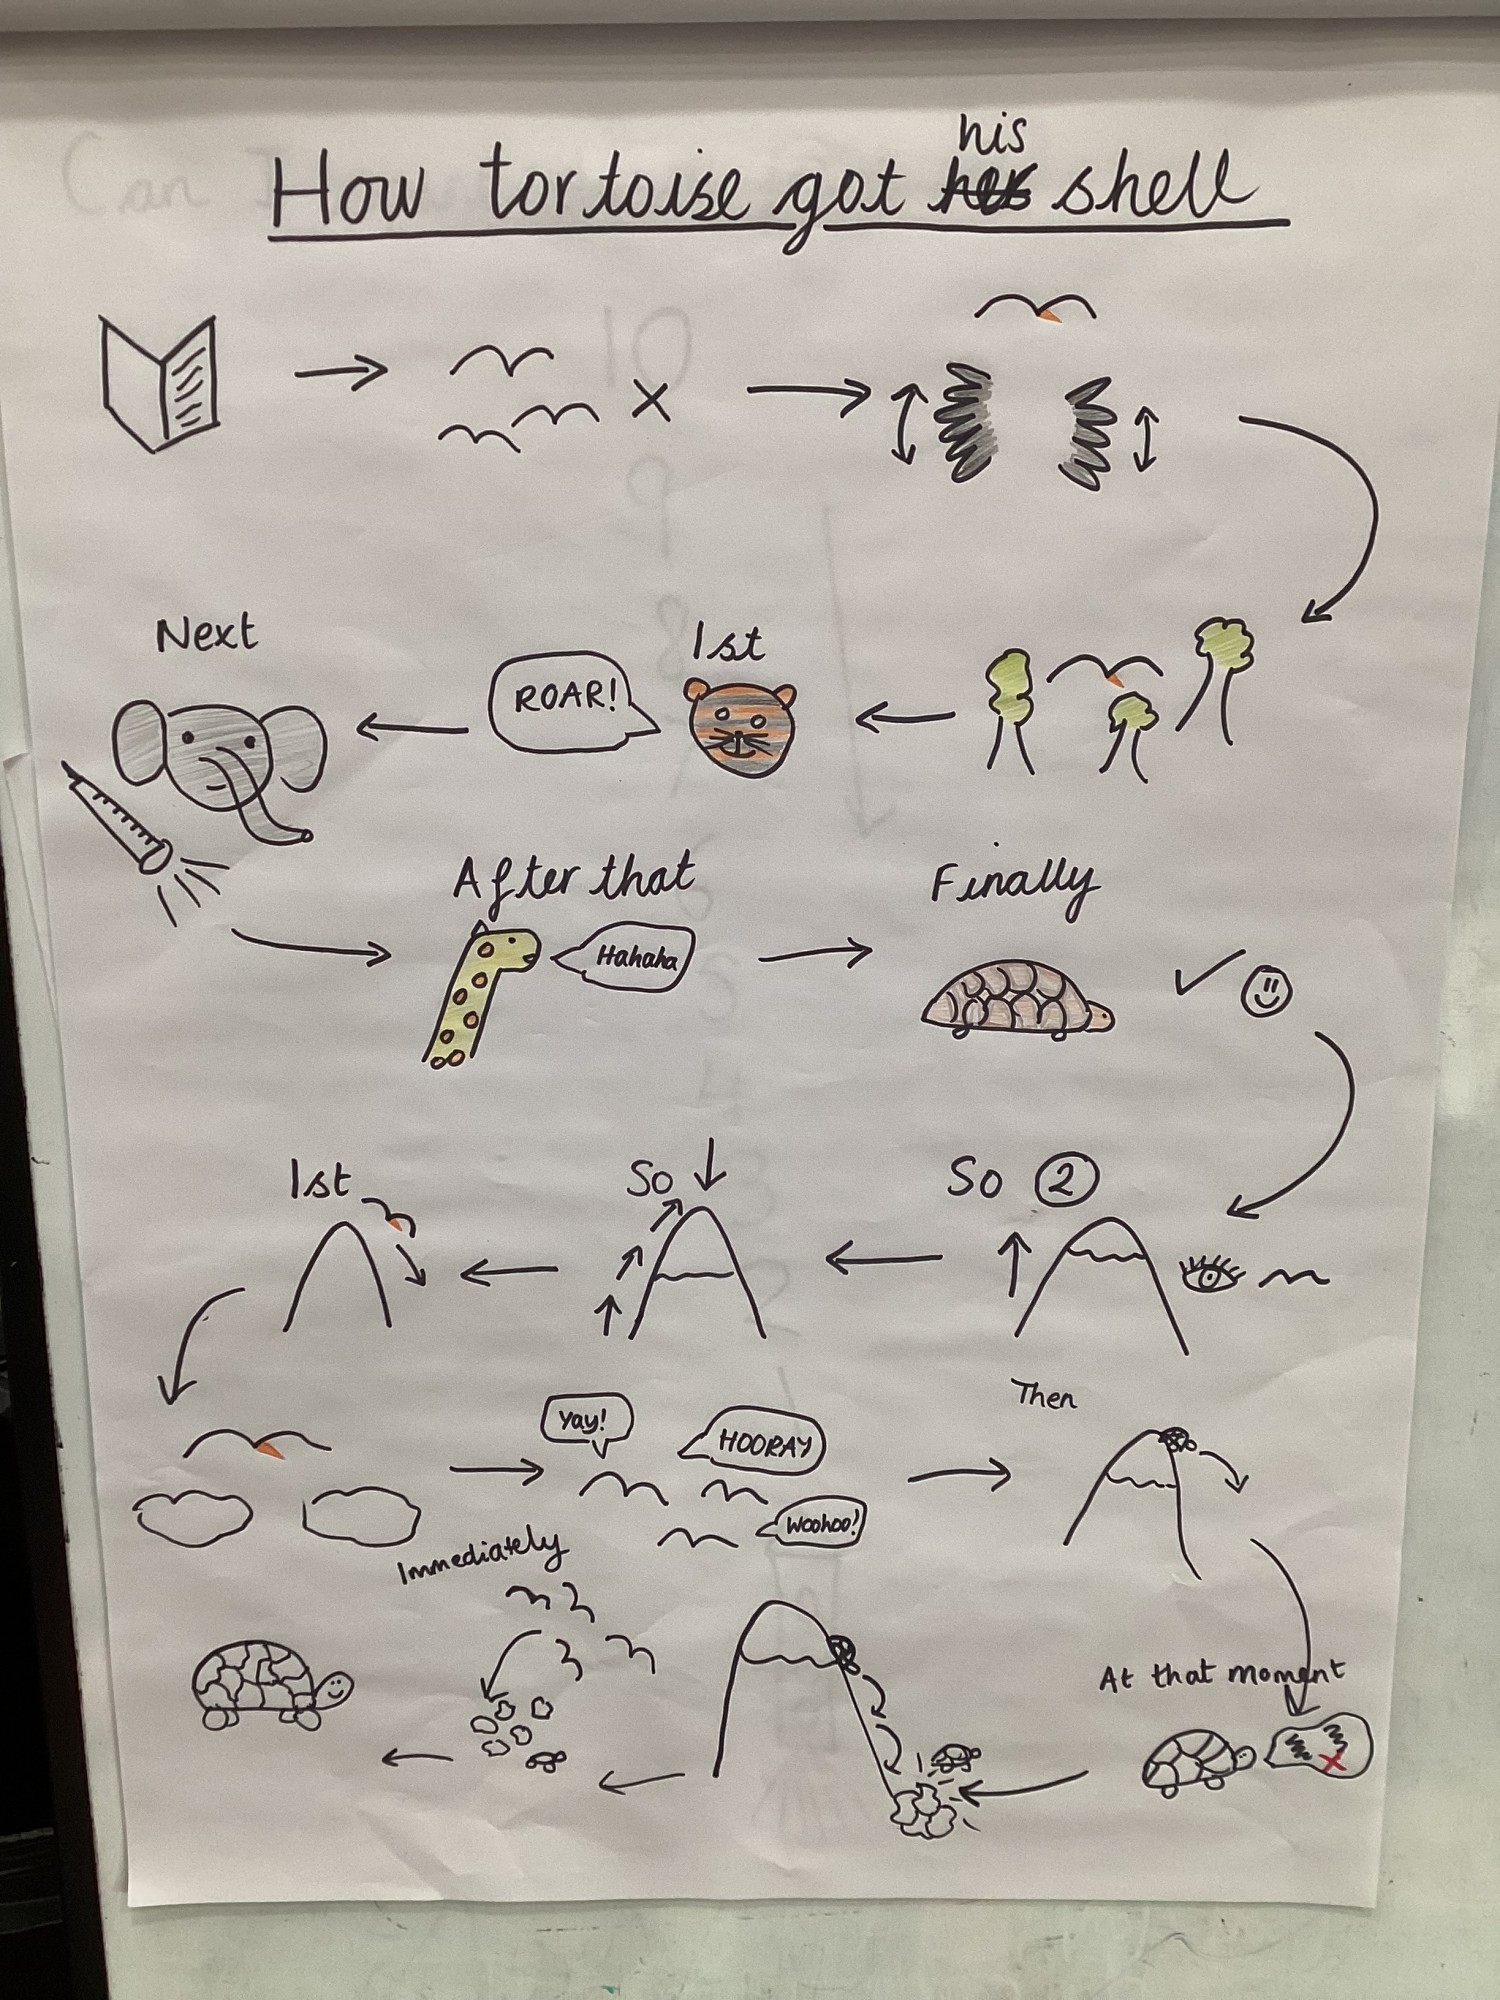 How tortoise got his shell
1st
Next
ROAR!
After that
Finally
Hahaha
So 2
So
1st
Then
Yay!
HOORAY
Woohoo!
Immediately
At that moment